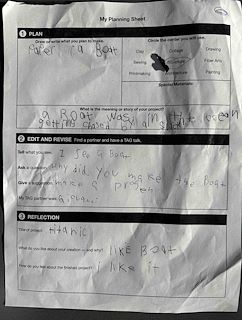 My Planning Sheet
1 PLAN
Draw or write what you plan to make.
Circle the center you will use.
Paker a Boat
Clay Collage Drawing
Sewing Fiber Arts
Printmaking Architecture Painting
Special Materials:
What is the meaning or story of your project?
a Boat was in the ocean
getting chased by a
2 EDIT AND REVISE Find a partner and have a TAG talk.
Tell what you see. I see a Boat
Ask a question. Why did you make the Boat
Give a suggestion. make a
My TAG partner was
3 REFLECTION
Title of project: titanic
What do you like about your creation and why? I like Boat
How do you feel about the finished project? I like it